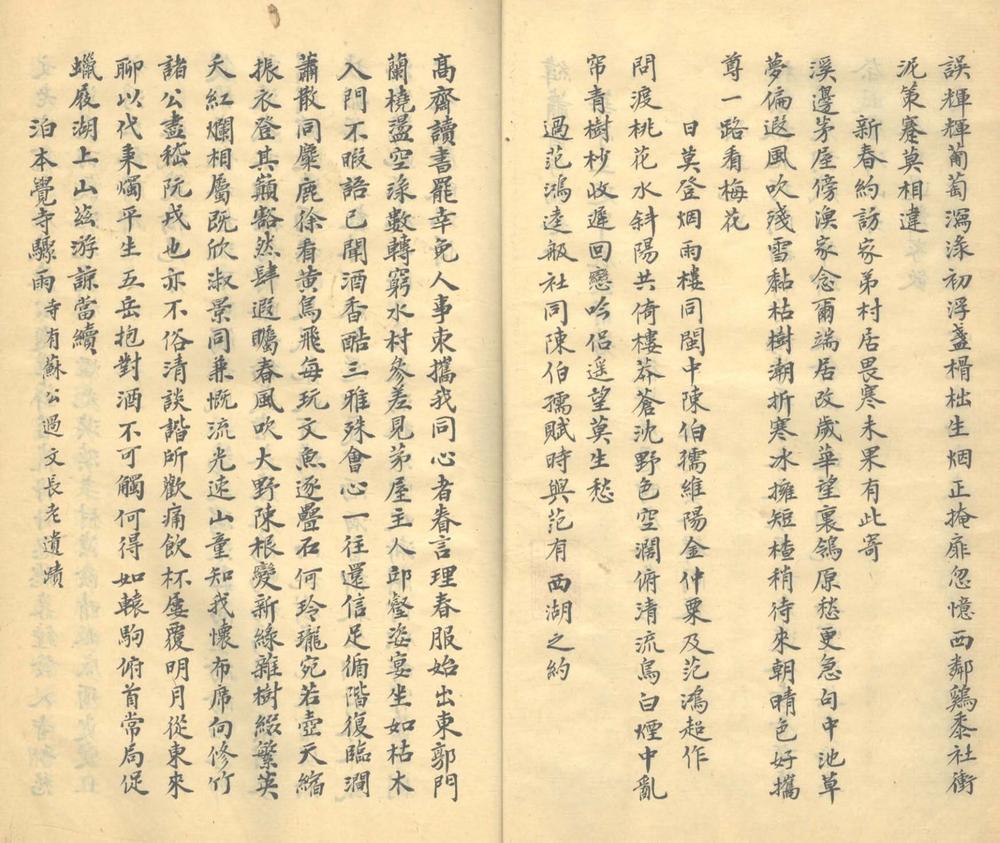 誤輝輝葡萄瀉淥初浮盞榾柮生烟正掩扉忽憶西鄰鷄黍社衝
泥策蹇莫相違
新春約訪家弟村居畏寒未果有此寄
溪邊茅屋傍漁家念爾端居改歲華望裏鴒原愁更急句中池草
夢偏遐風吹殘雪黏枯樹潮折寒冰擁短楂稍待來朝晴色好攜
尊一路看梅花
日莫登烟雨樓同閩中陳伯孺維陽金仲粟及范鴻超作
問渡桃花水斜陽共倚樓莽蒼沈野色空濶俯清流鳥白煙中亂
帘青樹杪收遲回戀吟侶遥望莫生愁
過范鴻逵級社同陳伯孺賦時與范有西湖之約
高齋讀書罷幸免人事束攜我同心者眷言理春服始出東郭門
蘭橈盪空淥數轉窮水村參差見茅屋主人邱壑姿宴坐如枯木
入門不暇語已聞酒香酷三雅殊會心一往還信足循階復臨澗
蕭散同麋鹿徐看黃鳥飛每玩文魚逐疊石何玲瓏宛若壺天縮
振衣登其巔豁然肆遐矚春風吹大野陳根變新綠雜樹綴繁英
夭紅爛相屬既欣淑景同兼慨流光速山童知我懷布席向修竹
諸公盡嵇阮戎也亦不俗清談諧所歡痛飲杯屢覆明月從東來
聊以代秉燭平生五岳抱對酒不可觸何得如轅駒俯首常局促
蠟屐湖上山茲游諒當續
泊本覺寺驟雨寺有蘇公過文長老遺蹟